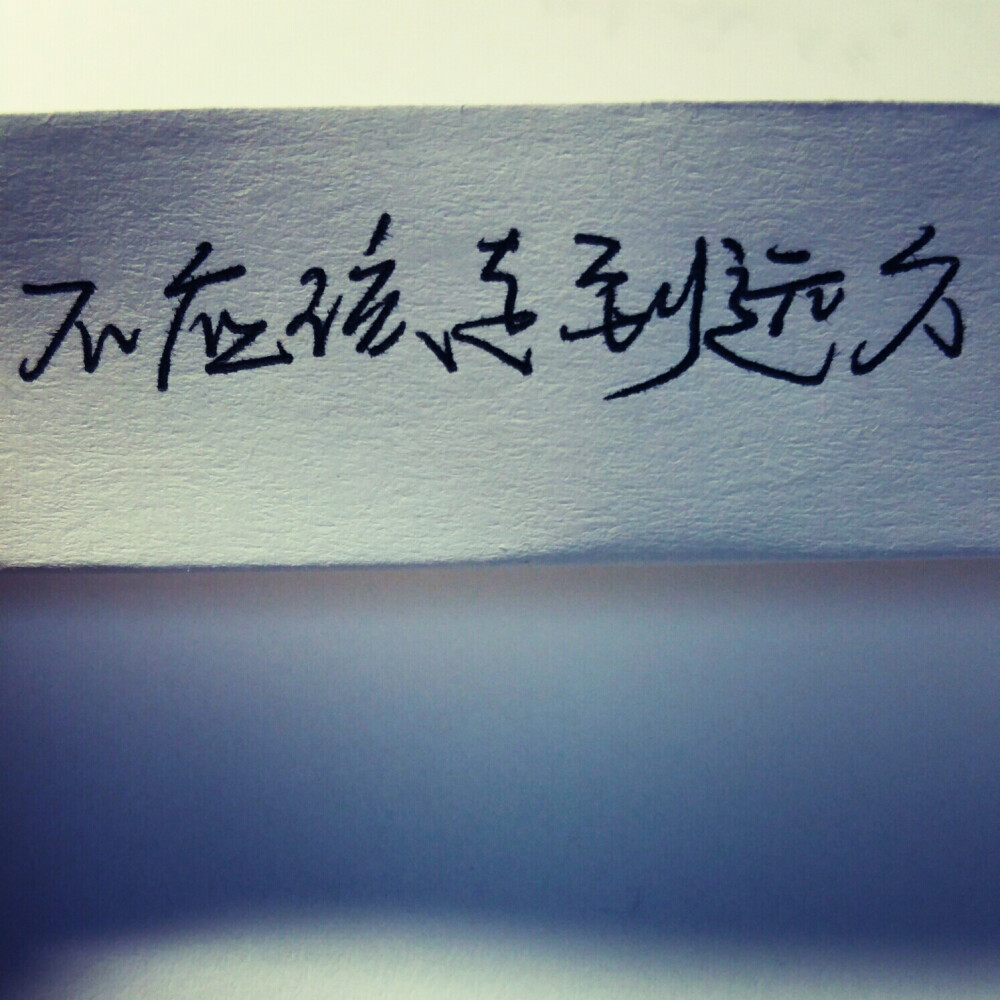 不应该到远方